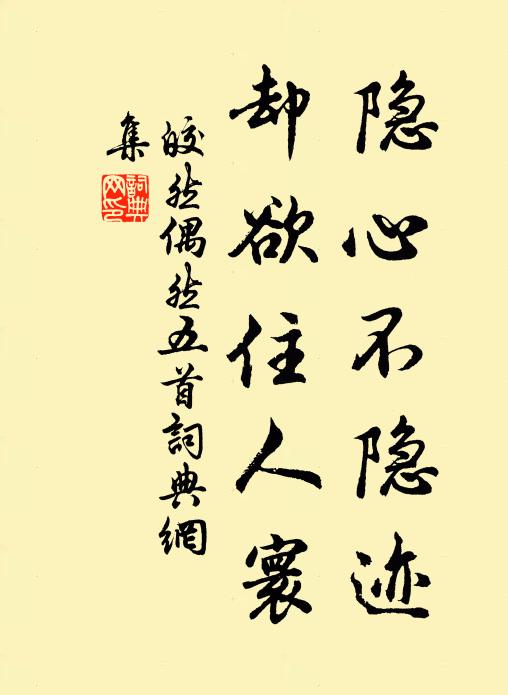 隐心不隐迹
却欲住人寰
皎然偶然五首詞典網
集
詞典網印